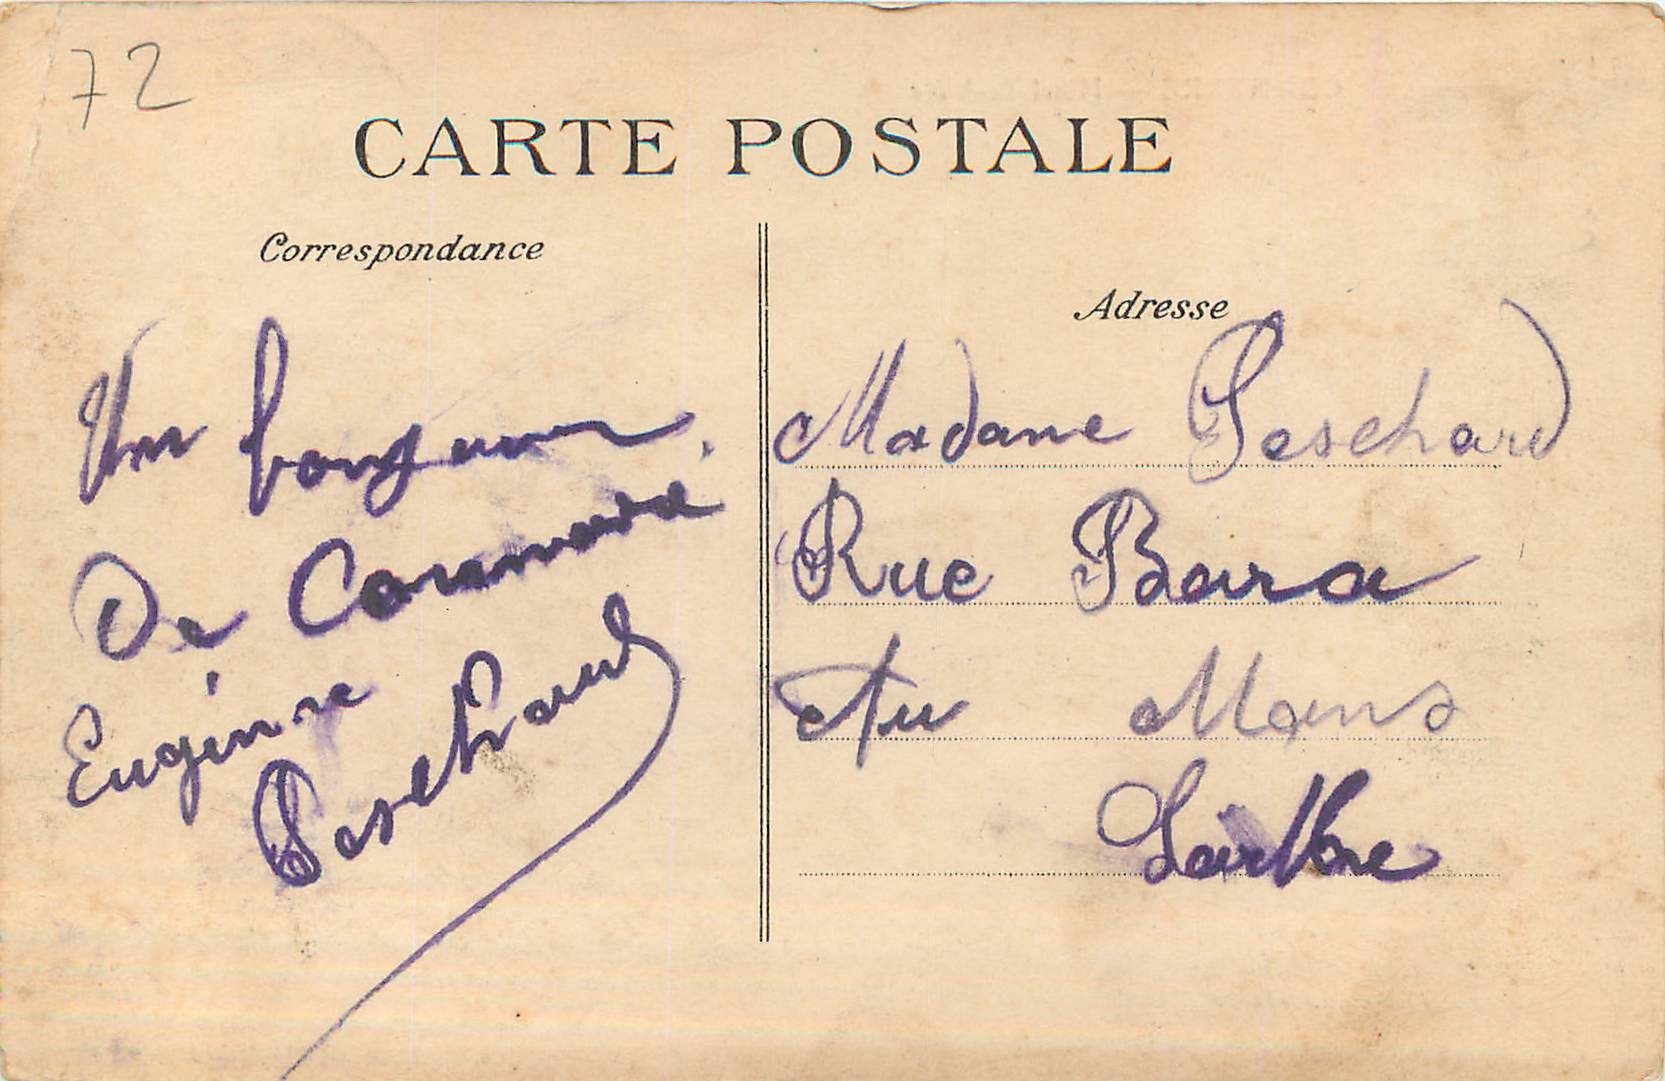 72
CARTE POSTALE
Correspondance
Un bonjour
De
Eugénie
Peschard
Adresse
Madame Peschard
Rue Bara
Au Mans
Sarthe